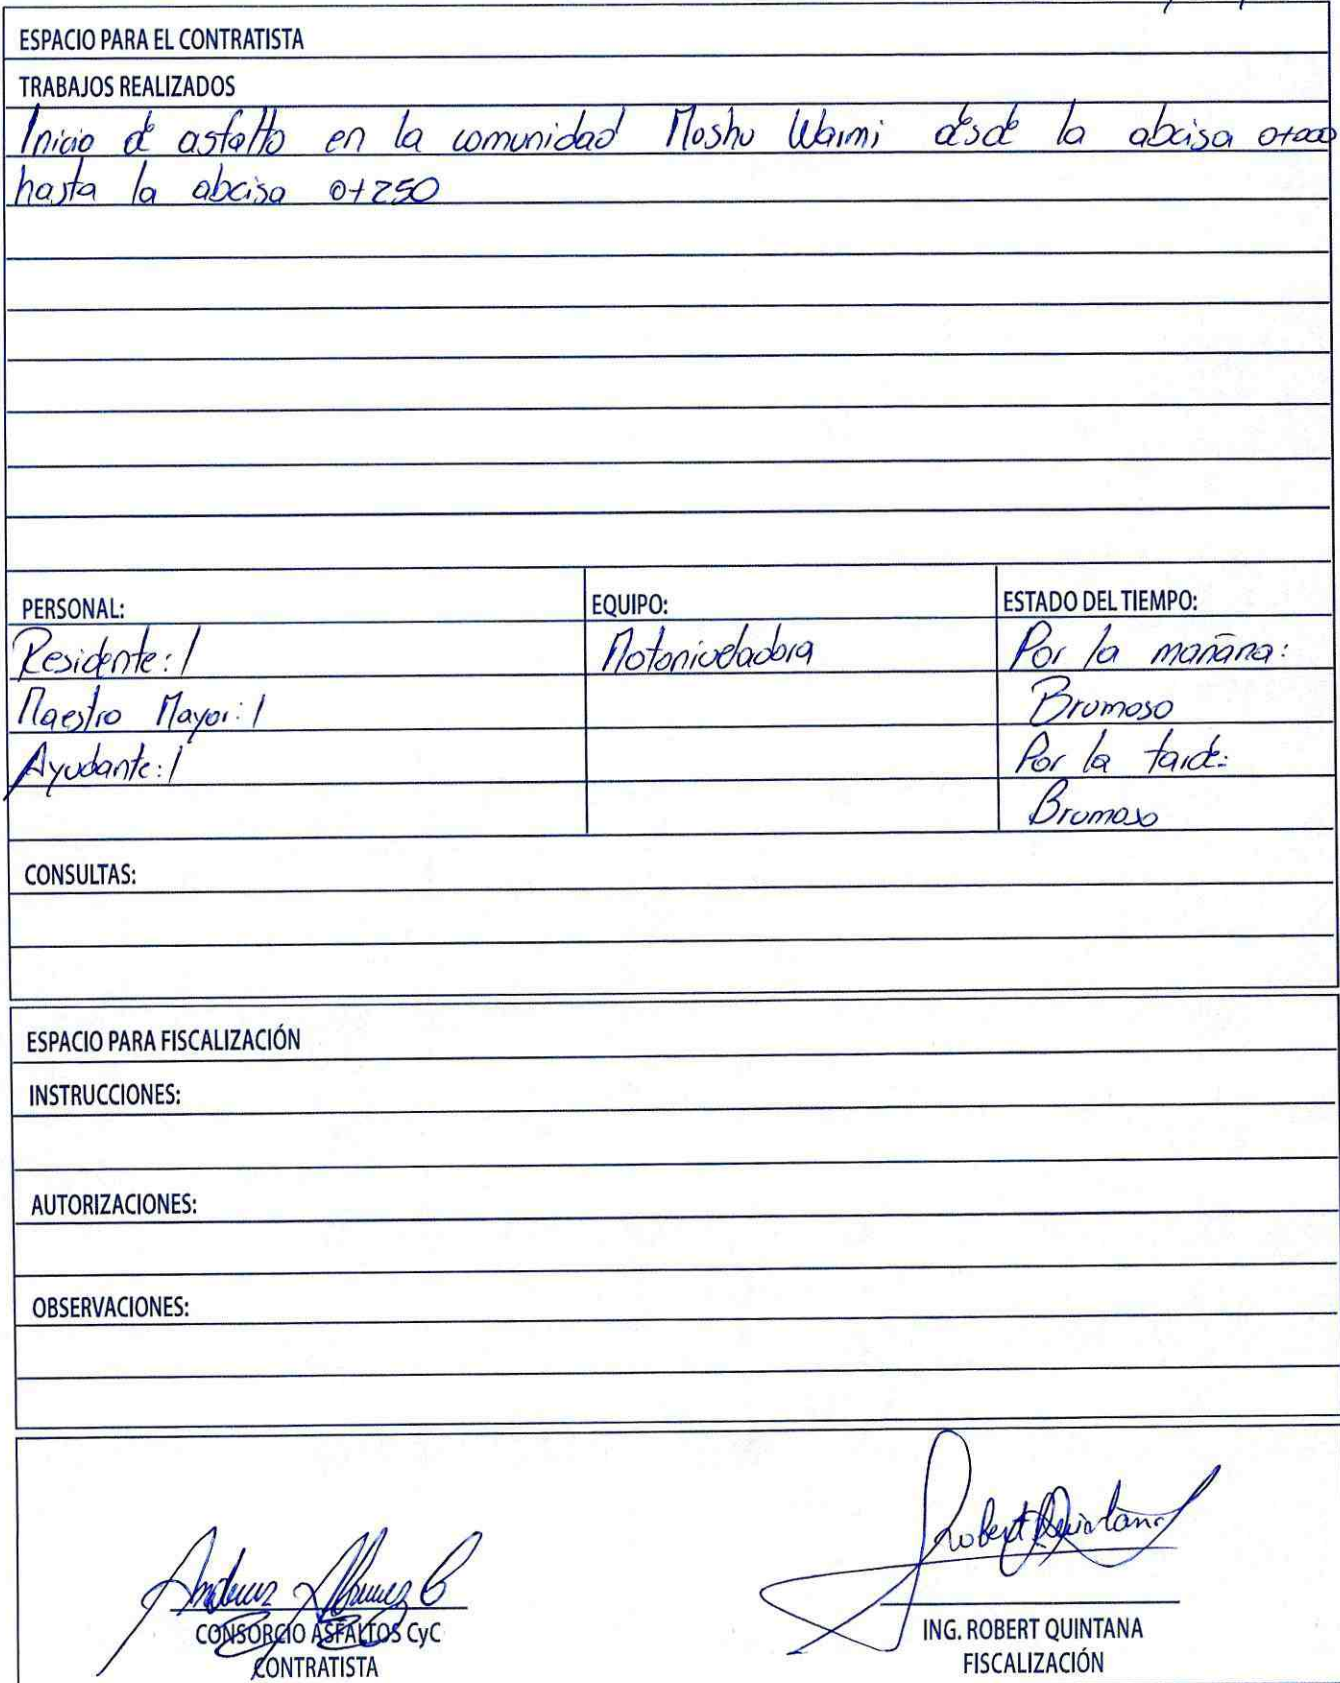 ESPACIO PARA EL CONTRATISTA
TRABAJOS REALIZADOS
Inicio de asfalto en la comunidad Moshu Warmi desde la abcisa 0+000
hasta la abcisa 0+250
PERSONAL: EQUIPO: ESTADO DEL TIEMPO:
Residente: 1 Motoniveladora Por la mañana:
Maestro Mayor: 1 Brumoso
Ayudante: 1 Por la tarde:
Brumoso
CONSULTAS:
ESPACIO PARA FISCALIZACIÓN
INSTRUCCIONES:
AUTORIZACIONES:
OBSERVACIONES:
Robert Quintana
CONSORCIO ASFALTOS CyC
CONTRATISTA
ING. ROBERT QUINTANA
FISCALIZACIÓN